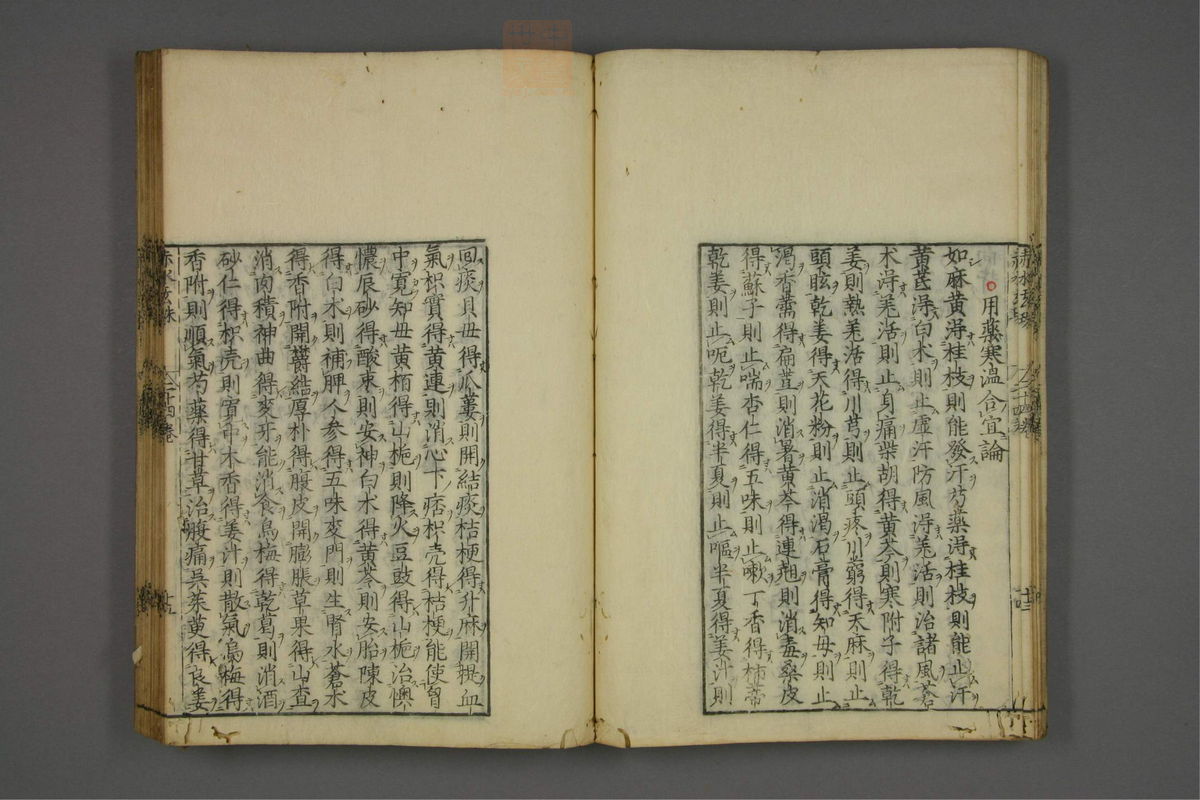 用藥寒温合宜論
如麻黄淂桂枝則能發汗芍藥淂桂枝則能止汗
黄芪淂白术則止虚汗防風淂羌活則治諸風蒼
术淂羌活則止身痛柴胡得黄芩則寒附子得乾
姜則熱羌活得川芎則止頭疼川窮得天麻則止
頭眩乾姜得天花粉則止消渇石膏得知母則止
渇香薷得扁荳則消暑黄芩得連翹則消毒桑皮
得蘇子則止喘杏仁得五味則止嗽丁香得柿蒂
乾姜則止呃乾姜得半夏則止嘔半夏得姜汁則
回痰貝毋得瓜蔞則開結痰桔梗得升麻開提血
氣枳實得黄連則消心下痞枳壳得桔梗能使胷
中寛知毋黄栢得山栀則降火豆豉得山栀治懊
憹辰砂得酸枣則安神白术得黄芩則安胎陳皮
得白术則補脾人参得五味麥門則生腎水蒼术
得香附開欝結厚朴得腹皮開膨脹草果得山查
消肉積神曲得麥牙能消食烏梅得乾葛則消酒
砂仁得枳壳則寛中木香得姜汁則散氣烏梅得
香附則順氣芍藥得甘草治腹痛吳茱萸得良姜